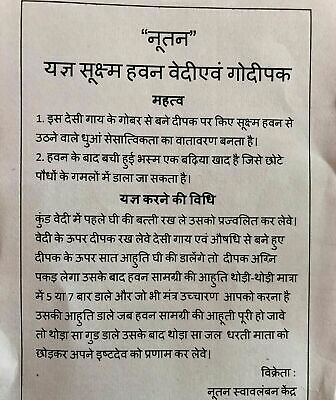 “नूतन”
यज्ञ सूक्ष्म हवन वेदीएवं गोदीपक
महत्व
1. इस देसी गाय के गोबर से बने दीपक पर किए सूक्ष्म हवन से
उठने वाले धुआं सेसात्विकता का वातावरण बनता है।
2. हवन के बाद बची हुई भस्म एक बढ़िया खाद है जिसे छोटे
पौधों के गमलों में डाला जा सकता है।
यज्ञ करने की विधि
कुंड वेदी में पहले घी की बत्ती रख ले उसको प्रज्वलित कर लेवे।
वेदी के ऊपर दीपक रख लेवे देसी गाय एवं औषधि से बने हुए
दीपक के ऊपर सात आहुति घी की डालेंगे तो दीपक अग्नि
पकड़ लेगा उसके बाद हवन सामग्री की आहुति थोड़ी-थोड़ी मात्रा
में 5 या 7 बार डाले और जो भी मंत्र उच्चारण आपको करना है
उसकी आहुति डाले जब हवन सामग्री की आहूती पूरी हो जावे
तो थोड़ा सा गुड डाले उसके बाद थोड़ा सा जल धरती माता को
छोड़कर अपने इष्टदेव को प्रणाम कर लेवे।
विक्रेता :
नूतन स्वावलंबन केंद्र